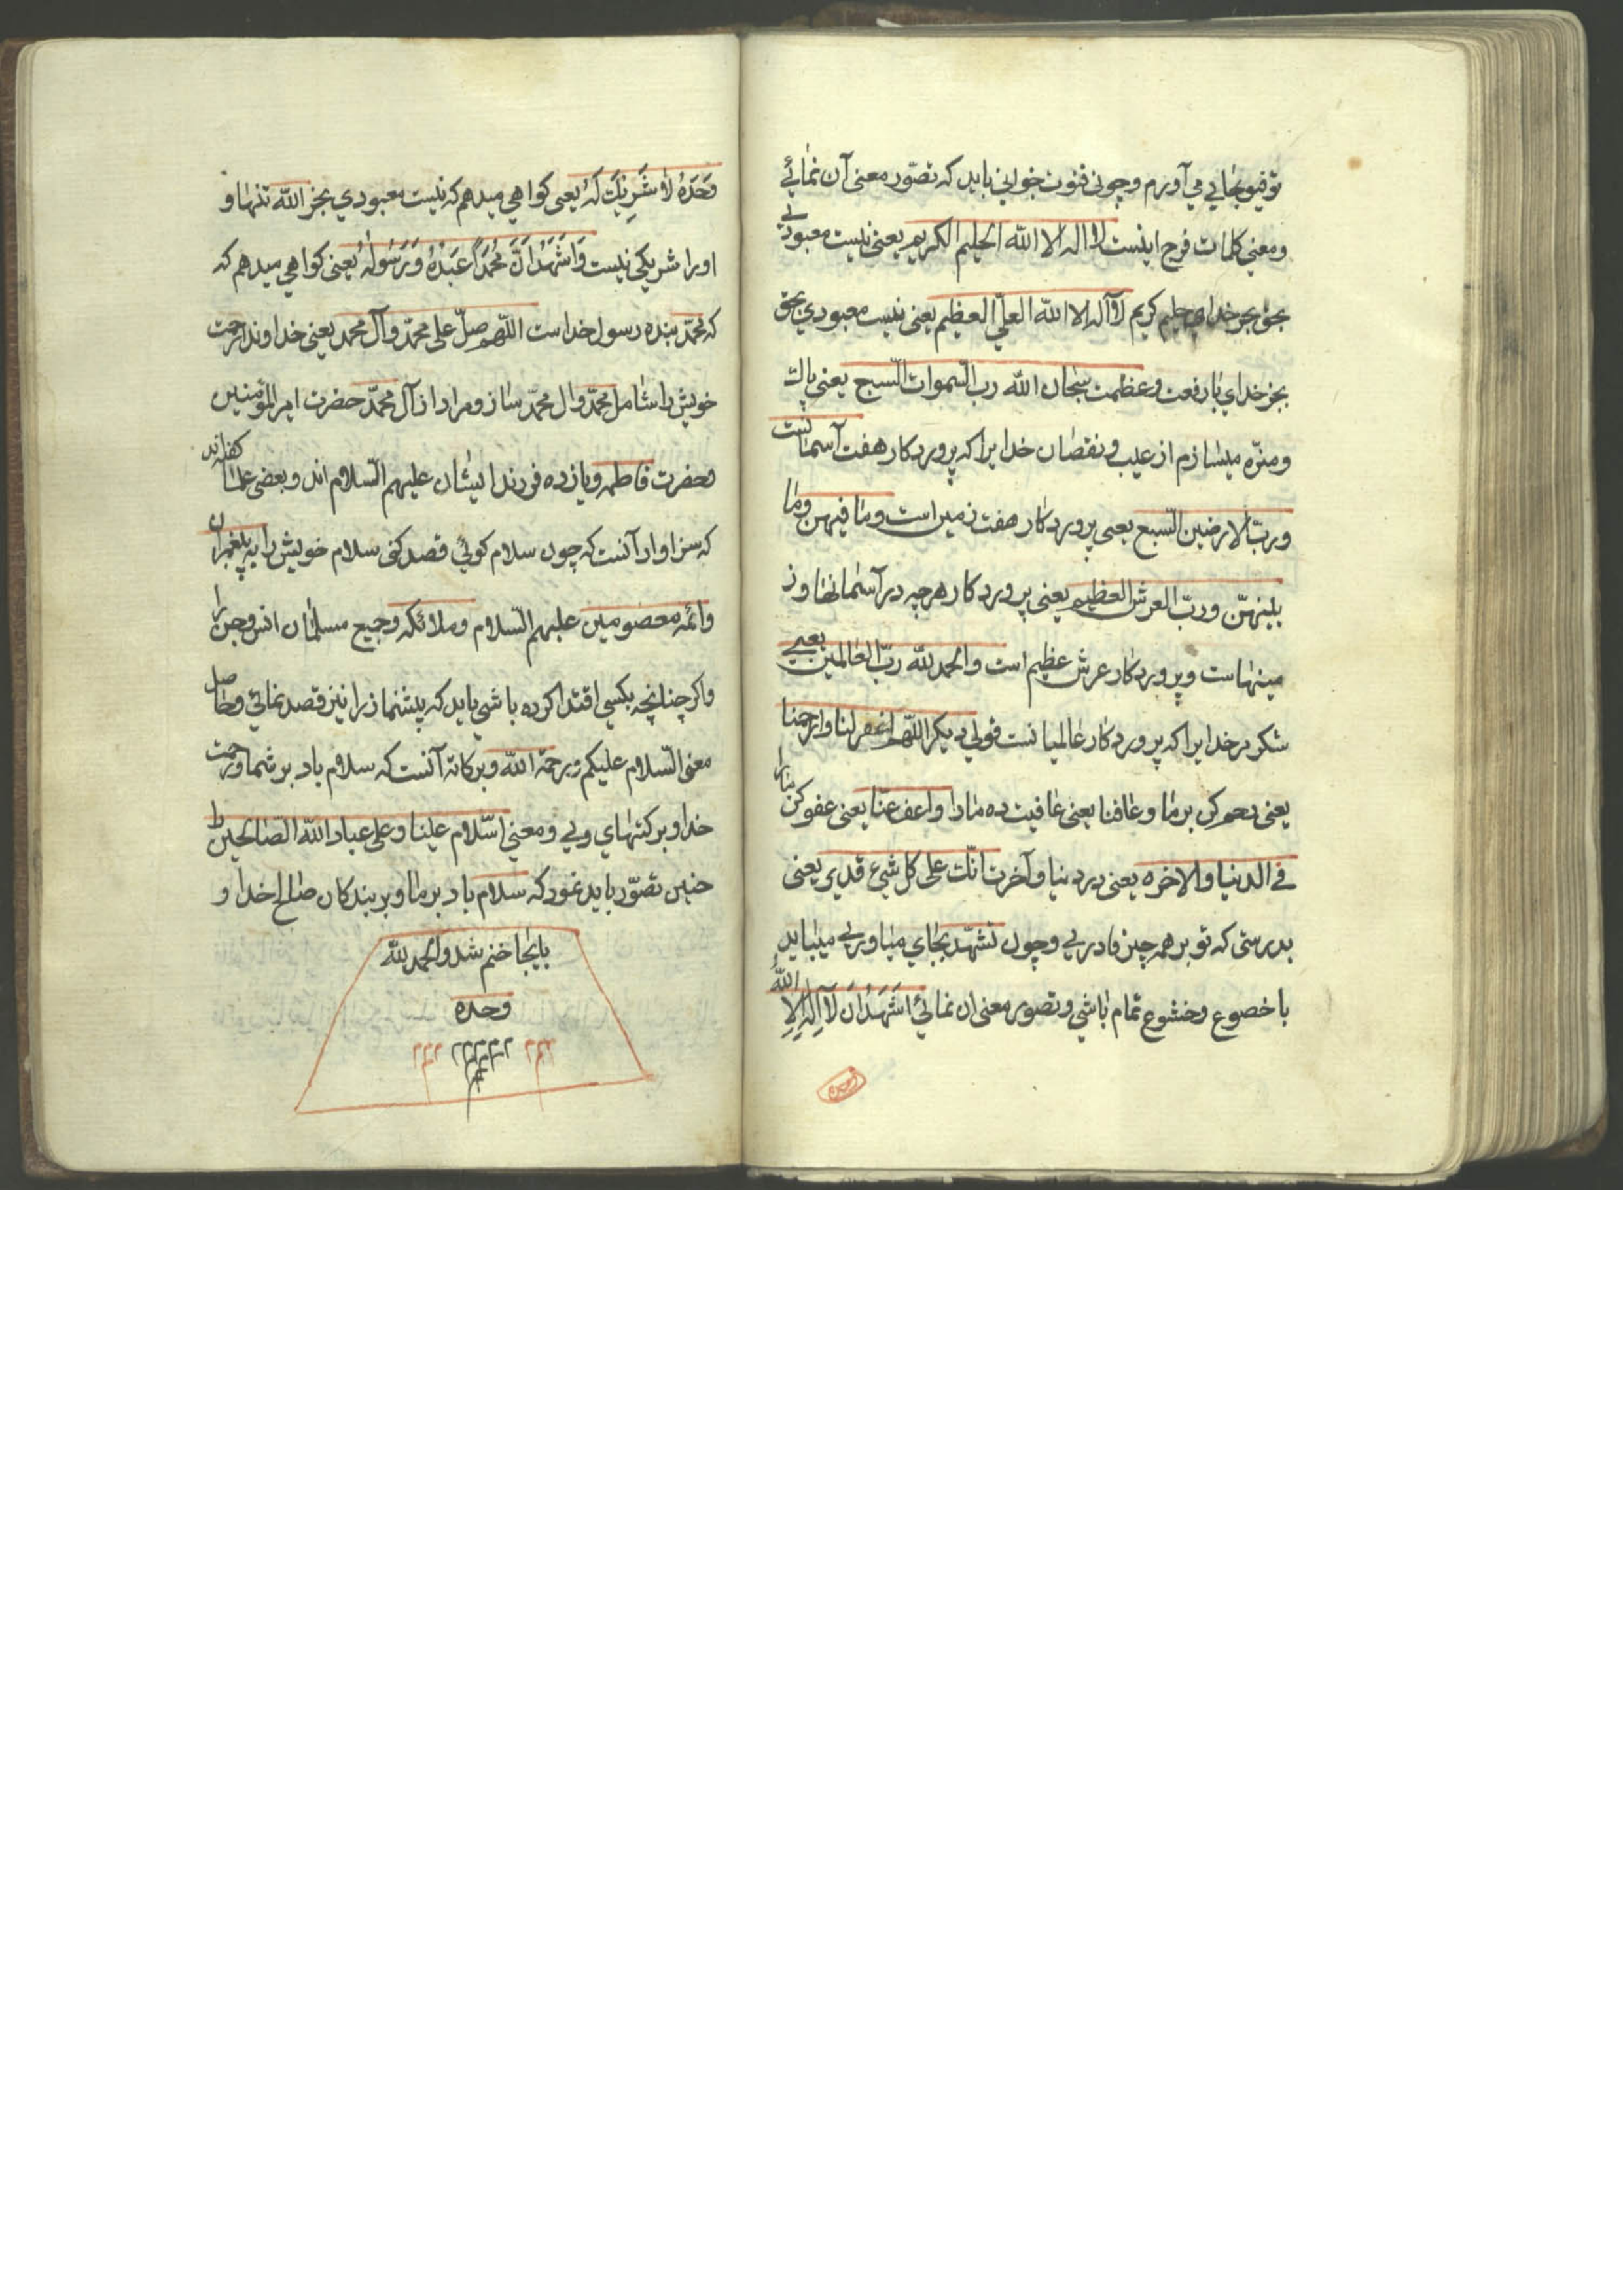 توفیق بجایی می‌آورم و چونی قنوت خوانی باید که تصوّر معنی آن نمائے
ومعنی کلمات فرج اینست لا اله الا الله الحلیم الکریم یعنی نیست معبودی
بحق بجز خدای حلیم کریم لا اله الا الله العلیّ العظیم یعنی نیست معبودی بحق
بجز خدای بارفعت وعظمت سبحان الله رب السّموات السّبع یعنی پاک
ومنزّه میسازم از عیب و نقصان خدایرا که پروردکار هفت آسمانست
وربّ الارضین السّبع یعنی پروردکار هفت زمین است وما فیهن وما
بینهنّ وربّ العرش العظیم یعنی پروردکار هرچه در آسمانها و ز
مینهاست و پروردکار عرش عظیم است والحمد لله ربّ العالمین یعنی
شکر مر خدایرا که پروردکار عالمیانست قولی دیکر اللّهم اغفر لنا وارحمنا
یعنی رحم کن بر ما وعافنا یعنی عافیت ده مارا واعف عنّا یعنی عفو کن مارا
فی الدنیا والاخره یعنی در دنیا وآخرت انّک علی کل شیء قدیر یعنی
بدرستی که تو بر همه چیز قادریی وچون تشهّد بجای میاوریی میباید
باخضوع وخشوع تمام باشی وتصور معنی ان نمائی اَشْهَدُ اَنْ لا اِلهَ اِلا الله
وَحْدَهُ لا شَرِیکَ لَهُ یعنی کواهی میدهم که نیست معبودی بجز الله تنها و
اورا شریکی نیست وَاَشْهَدُ اَنَّ مُحَمَّداً عَبْدُهُ وَرَسُولُهُ یعنی کواهی میدهم که
که محمّد بنده رسول خداست اللّهم صلّ علی محمّد وآل محمد یعنی خداوندا رحمت
خویش را شامل محمّد وال محمّد ساز ومراد از آل محمّد حضرت امیر المؤمنین
وحضرت فاطمه ویازده فرزند ایشان علیهم السّلام اند وبعضی علما گفته‌اند
که سزاوار آنست که چون سلام کوئی قصد کنی سلام خویش را به پیغمبران
وائمه معصومین علیهم السّلام وملائکه وجمیع مسلمانان انس وجن را
واکر چنانچه بکسی اقتدا کرده باشی باید که پیشنماز را نیز قصد نمائی وحاصل
معنی السّلام علیکم ورحمة الله وبرکاته آنست که سلام باد بر شما ورحمت
خدا وبرکتهای ویی ومعنی السّلام علینا وعلی عباد الله الصّالحین را
چنین تصوّر باید نمود که سلام باد بر ما وبر بندکان صالح خدا و
باینجا ختم شد والحمد لله
وحده